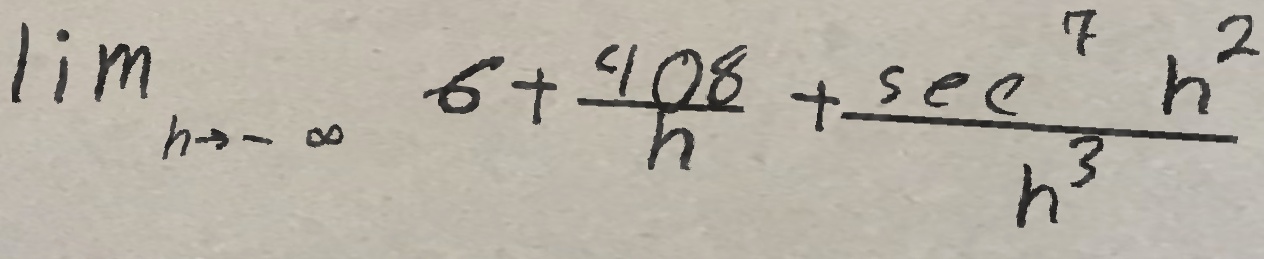 \lim_{h \to -\infty} 6 + \frac{408}{h} + \frac{\sec^7 h^2}{h^3}